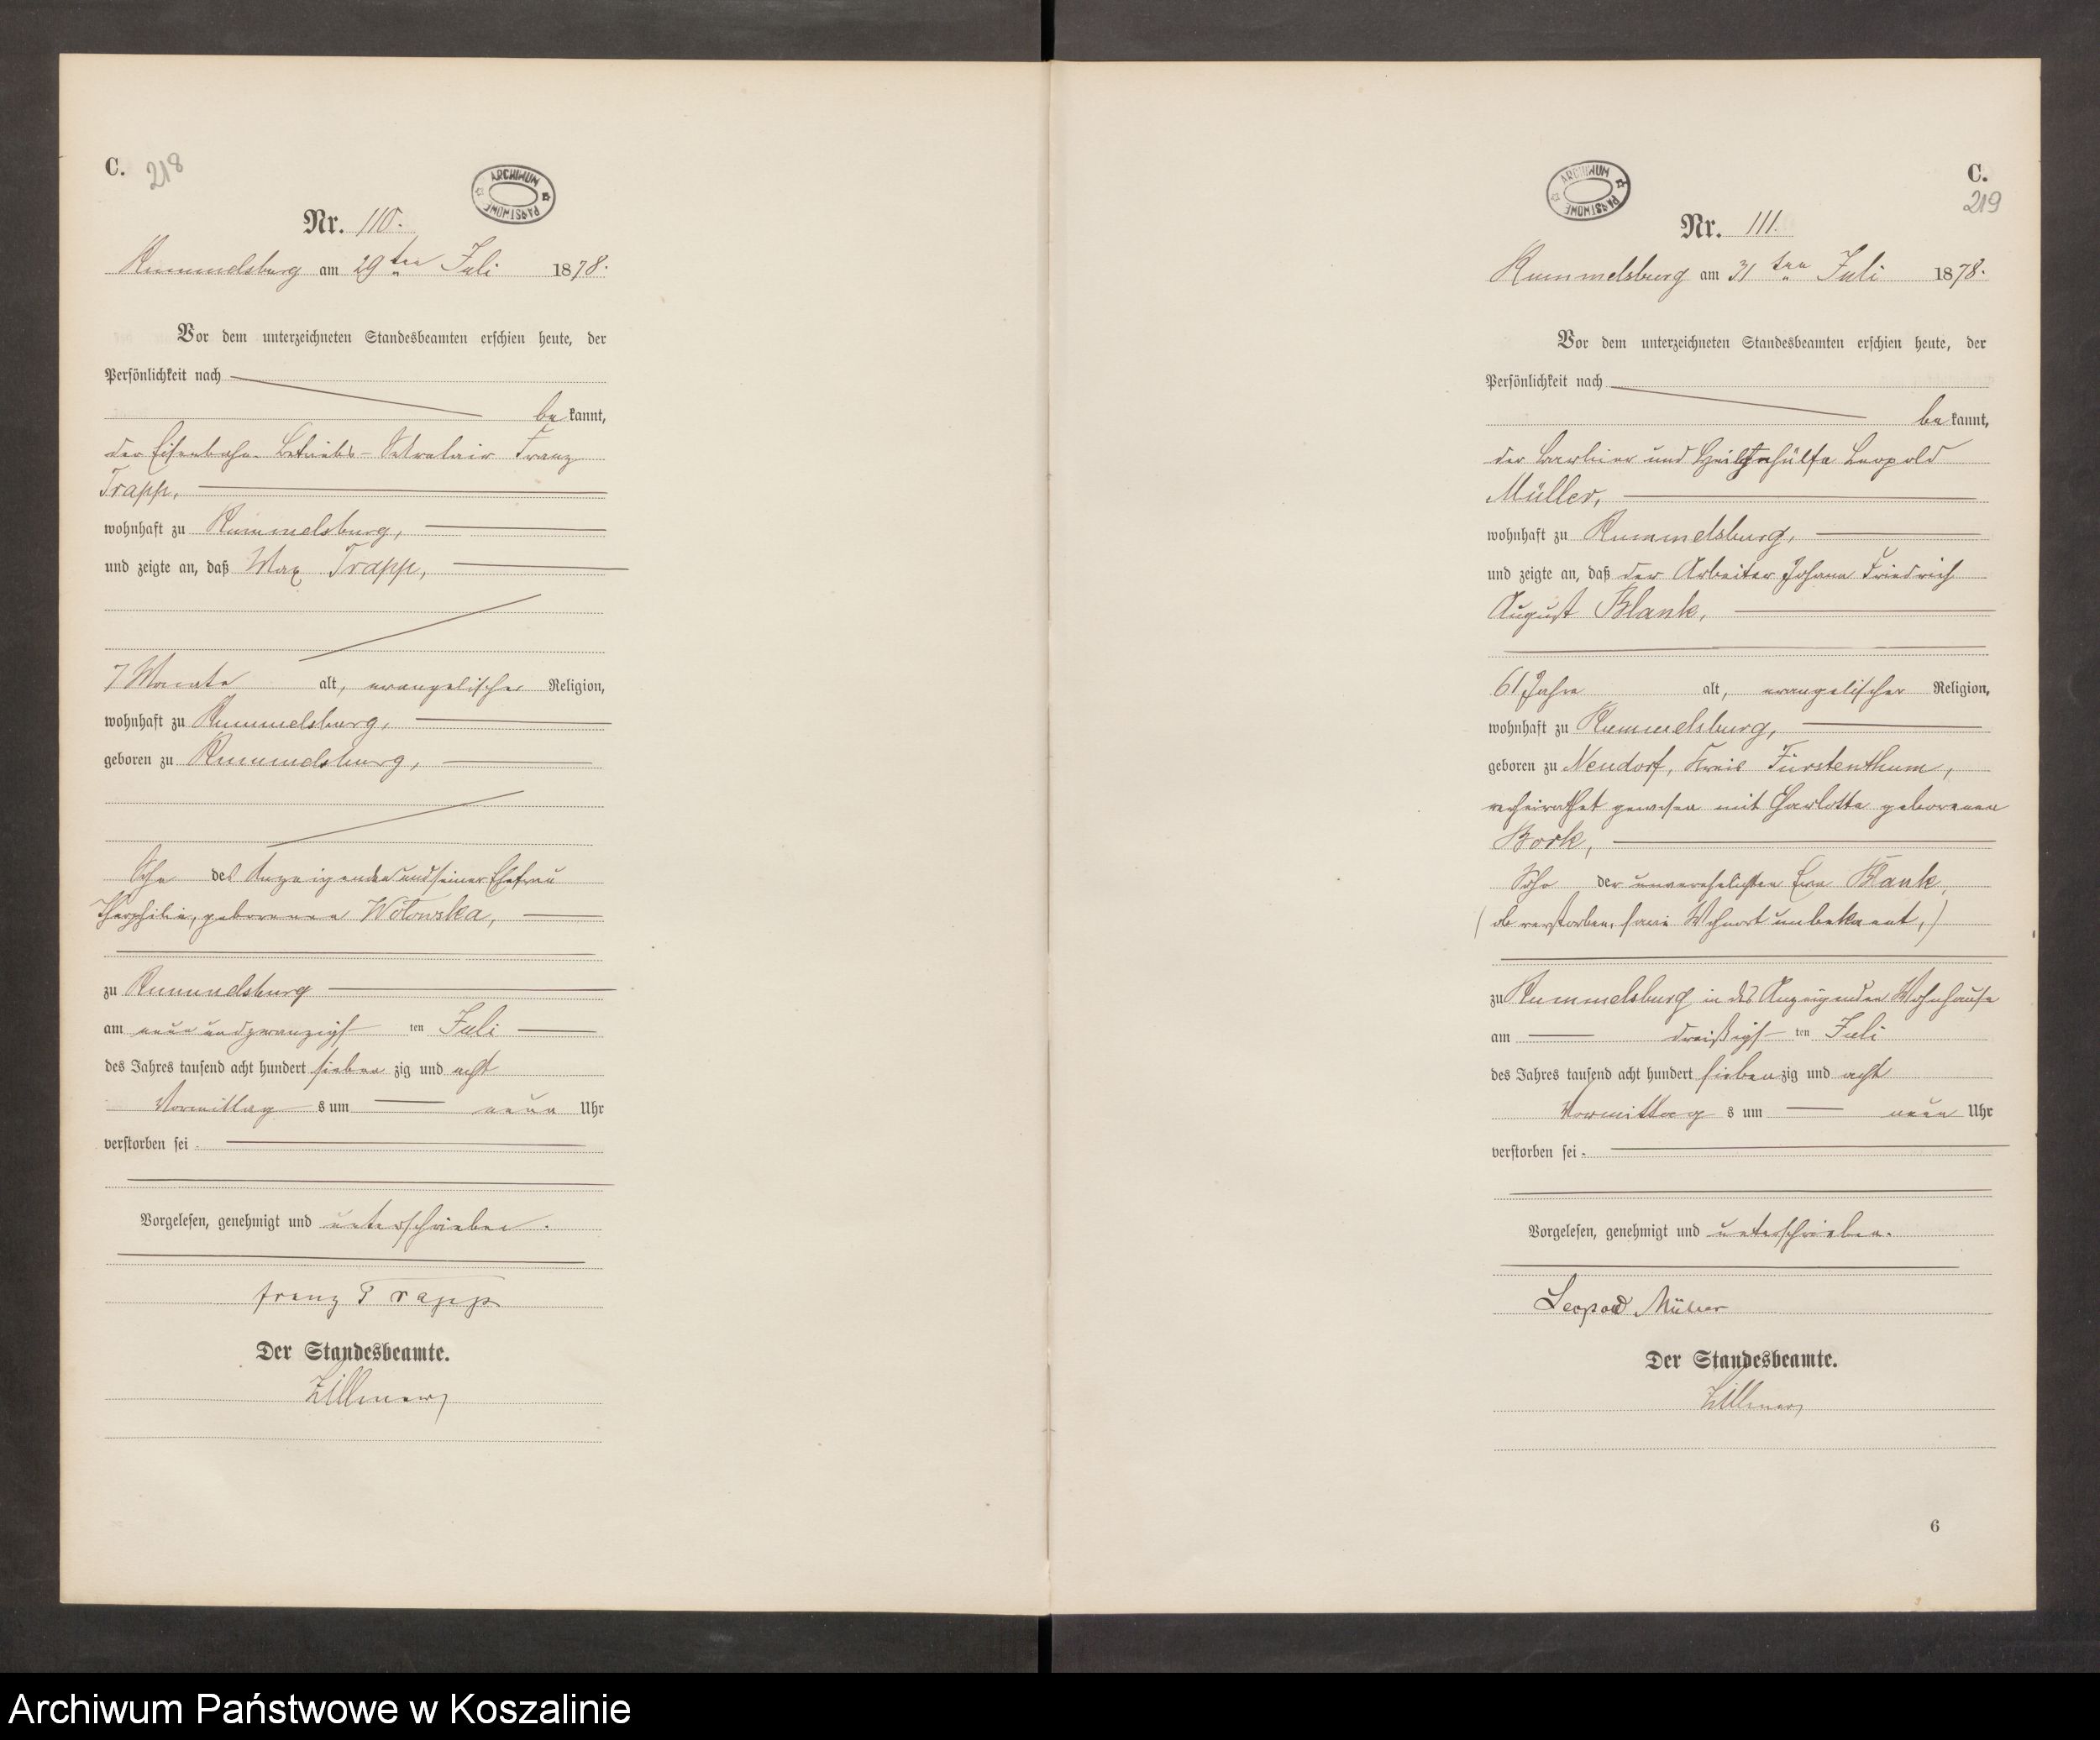 C. 218
ARCHIWUM PAŃSTWOWE
Nr. 110.
Rummelsburg am 29ten Juli 1878.
Vor dem unterzeichneten Standesbeamten erschien heute, der
Persönlichkeit nach
bekannt,
der Eisenbahn-Betriebs-Sekretair Franz
Trapp,
wohnhaft zu Rummelsburg,
und zeigte an, daß Max Trapp,
7 Monate alt, evangelischer Religion,
wohnhaft zu Rummelsburg,
geboren zu Rummelsburg,
Sohn des Anzeigenden und seiner Ehefrau
geborenen Wolowska,
zu Rummelsburg
am neun und zwanzigsten Juli
des Jahres tausend acht hundert siebenzig und acht
Vormittags um neun Uhr
verstorben sei.
Vorgelesen, genehmigt und unterschrieben.
Franz Trapp
Der Standesbeamte.
Zillmer
C.
219
ARCHIWUM PAŃSTWOWE
Nr. 111.
Rummelsburg am 31ten Juli 1878.
Vor dem unterzeichneten Standesbeamten erschien heute, der
Persönlichkeit nach
bekannt,
der Barbier und Heilgehülfe Leopold
Müller,
wohnhaft zu Rummelsburg,
und zeigte an, daß der Arbeiter Johann Friedrich
August Blank,
61 Jahre alt, evangelischer Religion,
wohnhaft zu Rummelsburg,
geboren zu Neudorf, Kreis Fürstenthum,
verheirathet gewesen mit Charlotte geborenen
Bork,
Sohn der unverehelichten Blank,
(ob verstorben, sowie Wohnort unbekannt,)
zu Rummelsburg in des Anzeigenden Wohnhause
am dreißigsten Juli
des Jahres tausend acht hundert siebenzig und acht
Vormittags um neun Uhr
verstorben sei.
Vorgelesen, genehmigt und unterschrieben.
Leopold Müller
Der Standesbeamte.
Zillmer
6
Archiwum Państwowe w Koszalinie